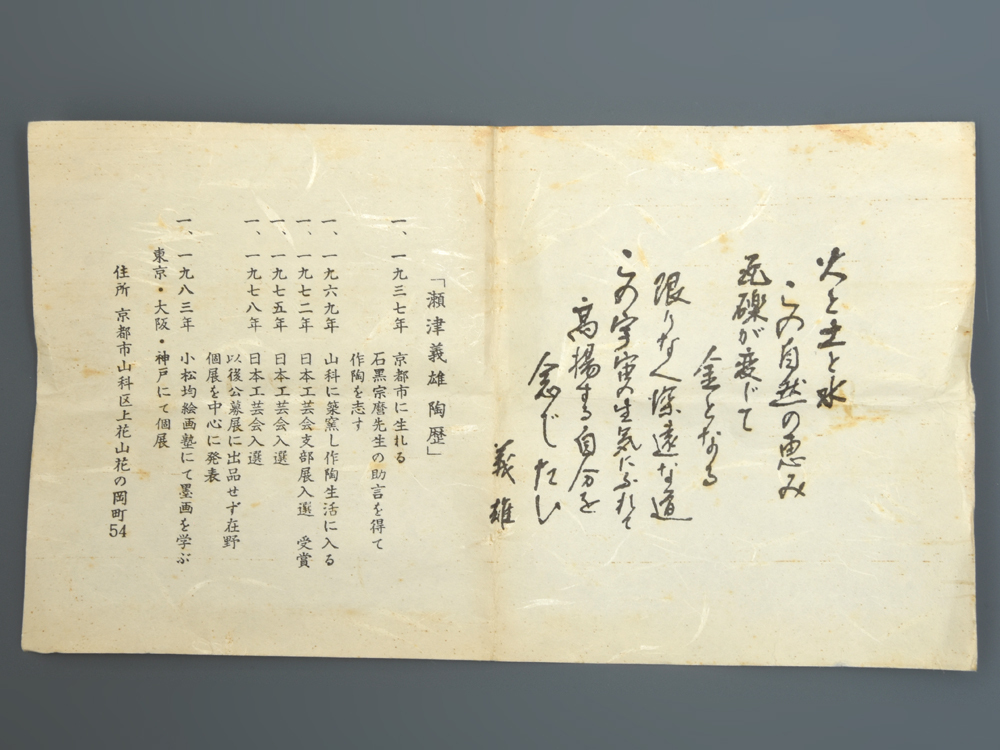 火と土と水
この自然の恵み
瓦礫が変じて
金となる
限りなく深遠な道
この宇宙の生気にふれて
高揚する自分を
念じたい
義雄
「瀬津義雄 陶歴」
一、一九三七年 京都市に生れる
石黒宗麿先生の助言を得て
作陶を志す
一、一九六九年 山科に築窯し作陶生活に入る
一、一九七二年 日本工芸会支部展入選 受賞
一、一九七五年 日本工芸会入選
一、一九七八年 日本工芸会入選
以後公募展に出品せず在野
個展を中心に発表
一、一九八三年 小松均絵画塾にて墨画を学ぶ
東京・大阪・神戸にて個展
住所 京都市山科区上花山花の岡町54